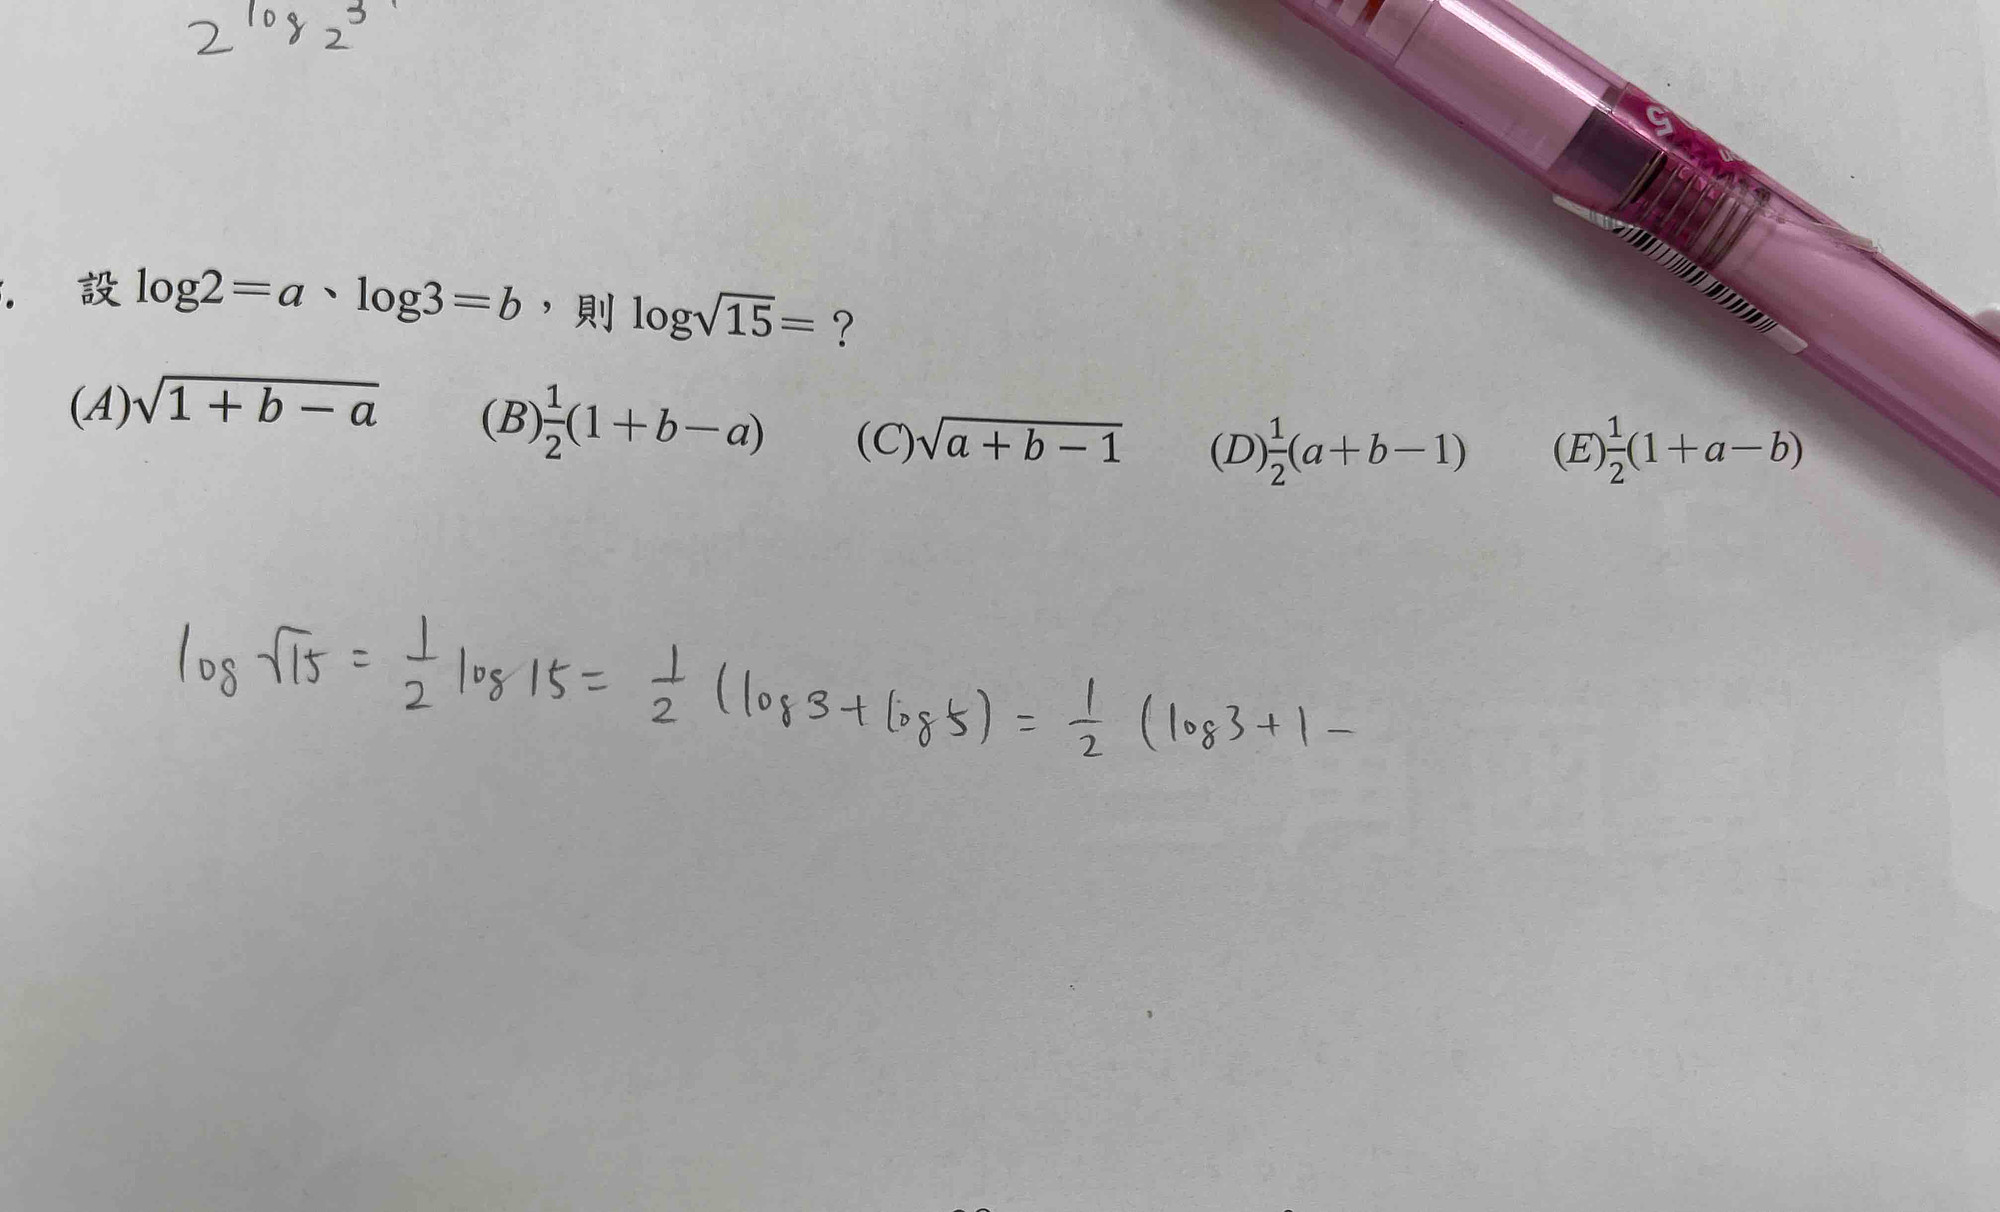 2^log_2 3
設 log2=a、log3=b，則 log√15=？
(A)√(1+b−a) (B)1/2(1+b−a) (C)√(a+b−1) (D)1/2(a+b−1) (E)1/2(1+a−b)
log √15 = 1/2 log 15 = 1/2 (log 3 + log 5) = 1/2 (log 3 + 1 −
5